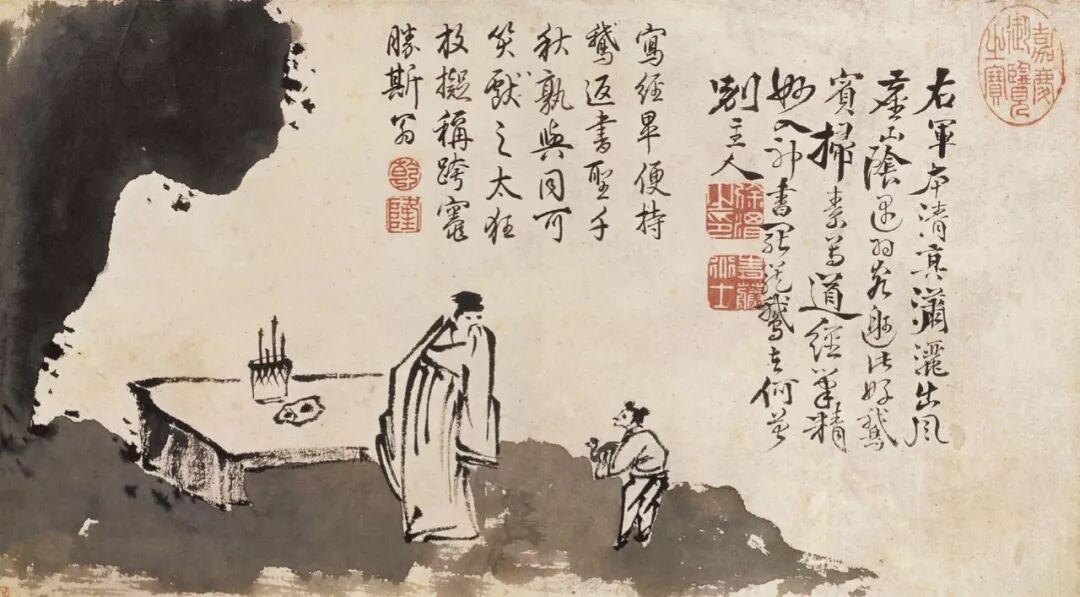 嘉慶御覽之寶
右軍本清真瀟灑出風
塵山陰遇羽客邀此好鵝
賓掃素寫道經筆精
妙入神書罷籠鵝去何曾
別主人
徐渭之印
寫經畢便持
鵝返書聖千
秋孰與同可
笑獻之太狂
放擬稱跨竈
勝斯翁
乾
隆